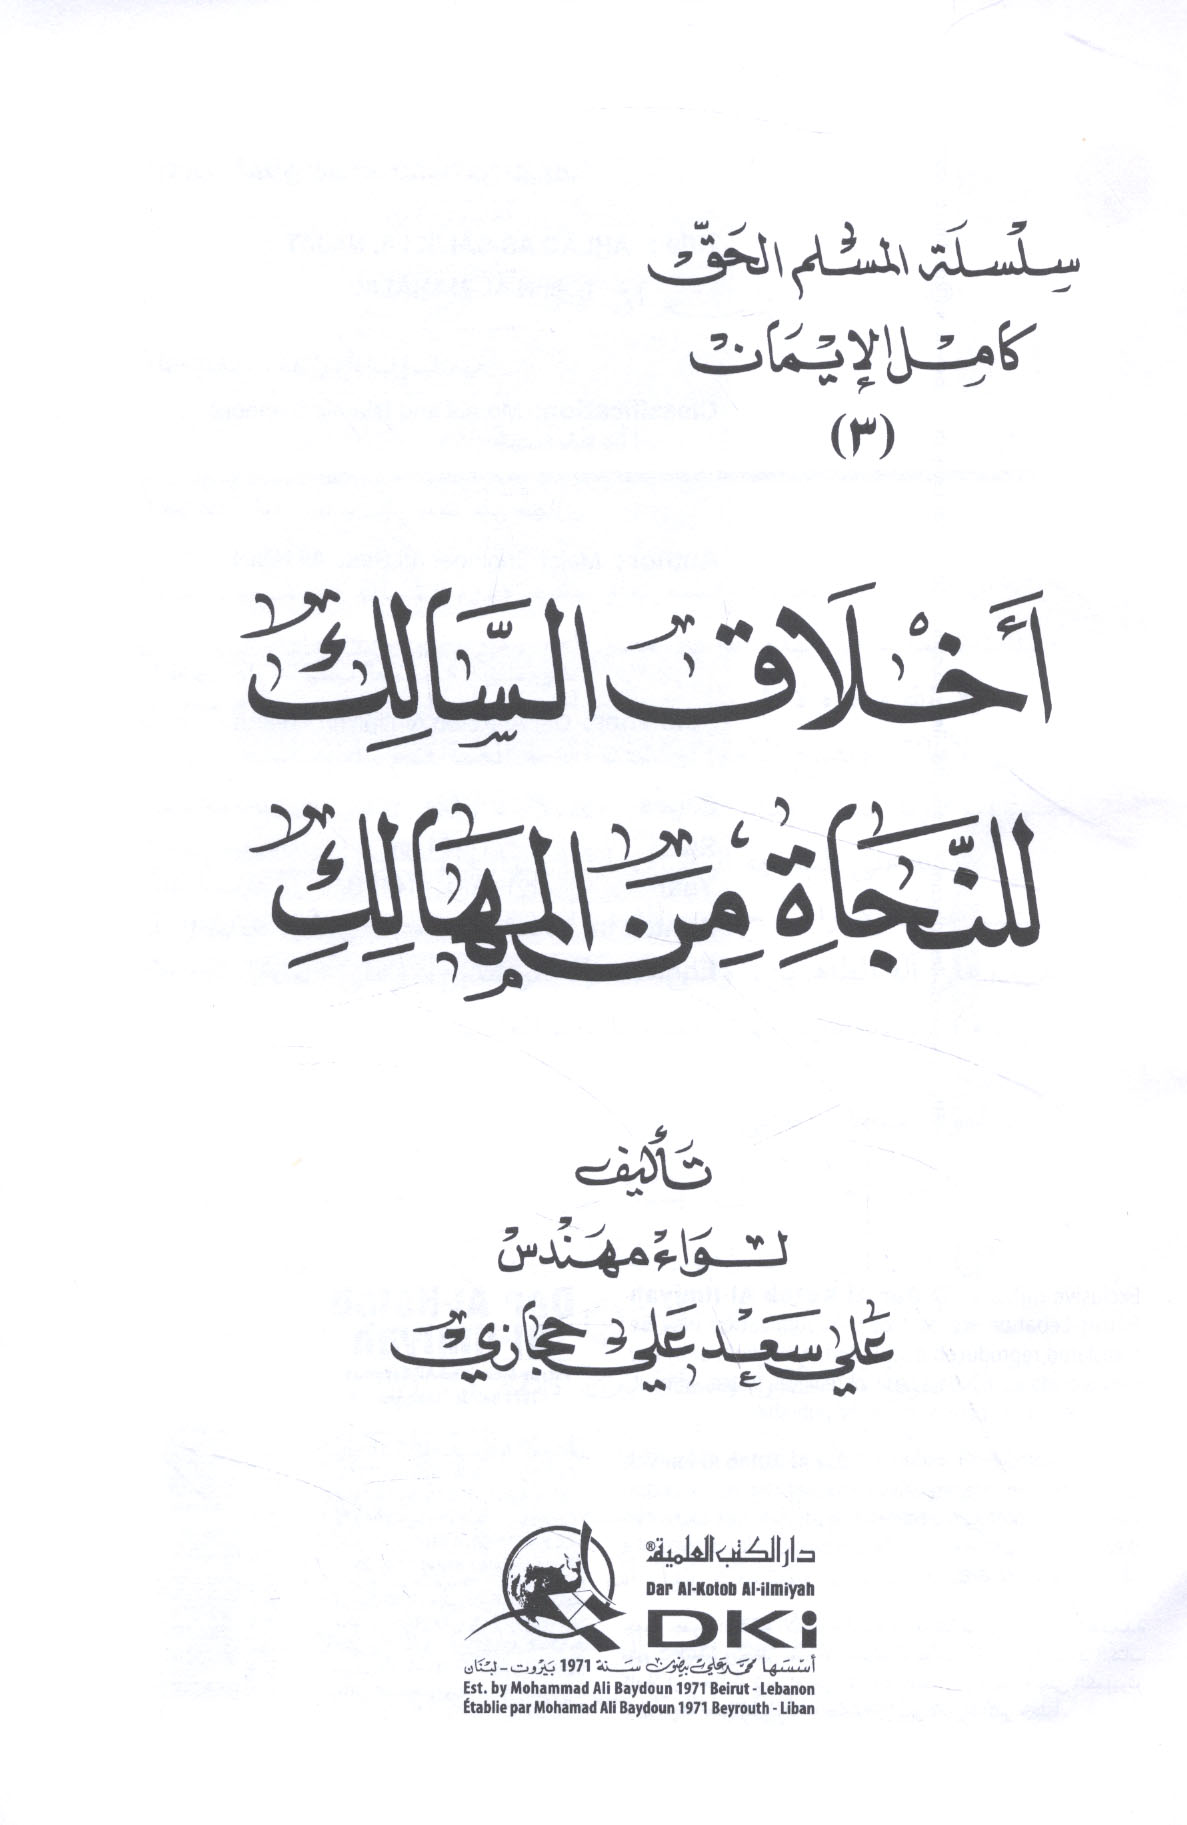 سِلْسِلَة المسْلم الحَقّ
كامِل الإيمَان
(٣)
أَخْلَاق السَّالِك
للنَّجَاةِ مِنَ المهَالِكِ
تَأليف
لِوَاء مهَنْدس
عَلي سَعْد عَلي حجَازي
دار الكتب العلمية®
Dar Al-Kotob Al-ilmiyah
DKi
أسّسَها محمّد علي بيضون سَنة 1971 بَيروت - لبْنَان
Est. by Mohammad Ali Baydoun 1971 Beirut - Lebanon
Établie par Mohamad Ali Baydoun 1971 Beyrouth - Liban